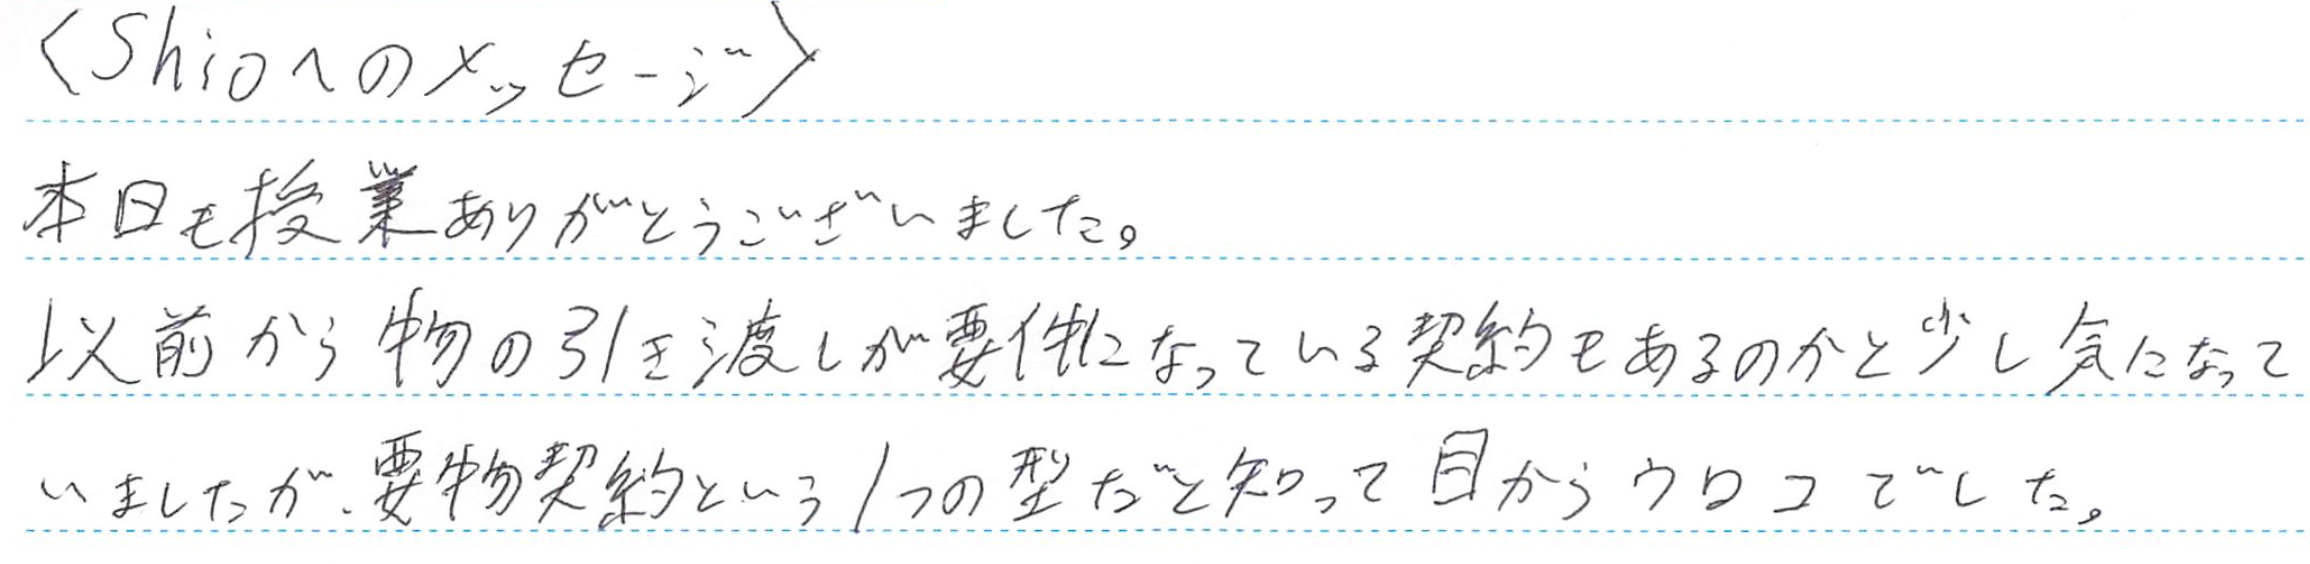 〈Shioへのメッセージ〉
本日も授業ありがとうございました。
以前から物の引き渡しが要件になっている契約もあるのかと少し気になって
いましたが、要物契約という1つの型だと知って目からウロコでした。